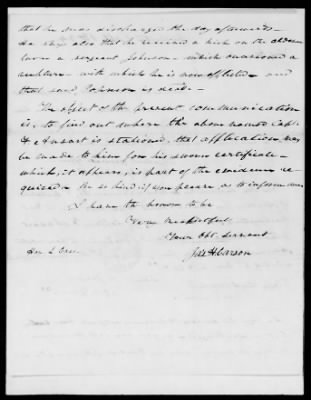 that he was discharged the day afterwards.
He says also that he received a kick on the abdomen
from a sergeant Johnson – which occasioned a
rupture – with which he is now afflicted – and
that said Johnson is dead –
The object of the present communication
is, to find out where the above named Capt.
Ansart is stationed, that application may
be made to him for his sworn certificate –
which, it appears, is part of the evidence re-
quired – Be so kind if you please as to inform me
I have the honour to be
Very respectful
Your Obt. Servant
Carson
Hon L Cass